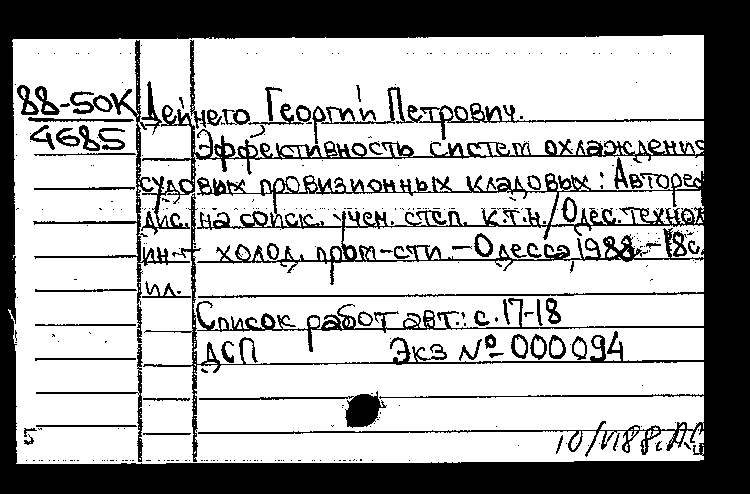 88-50К
4685
Дейнего Георгий Петрович.
Эффективность систем охлаждения
судовых провизионных кладовых: Автореф
дис. на соиск. учен. степ. к.т.н./Одес. технол
ин-т холод. пром-сти.-Одесса, 1988.-18с.
ил.
Список работ авт.: с. 17-18
ДСП Экз № 000094
5